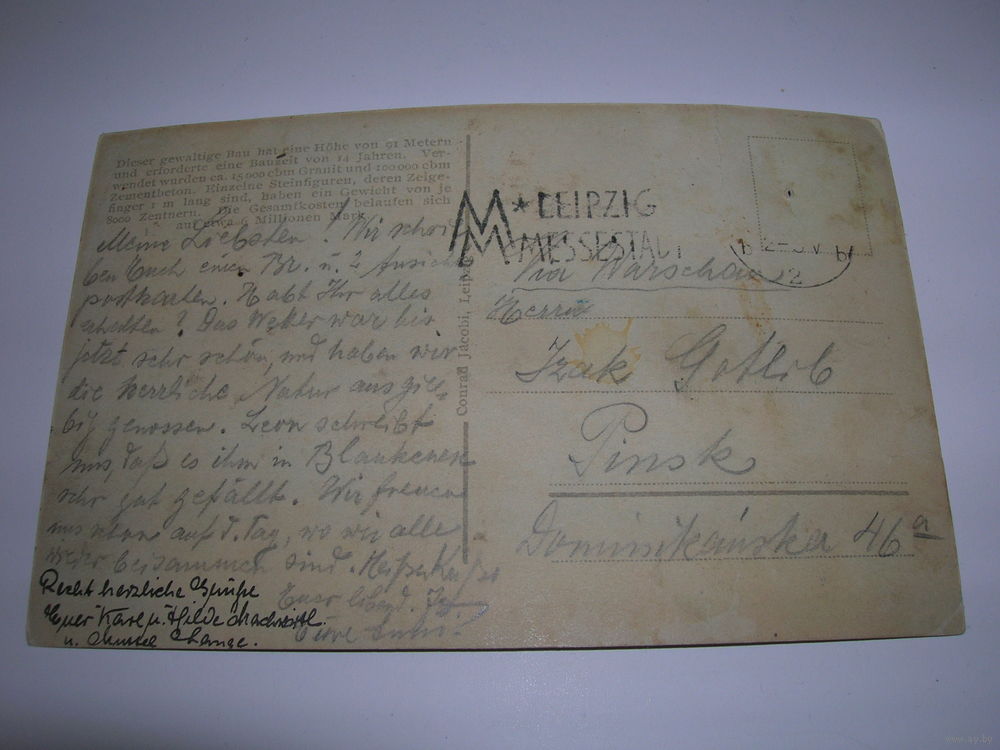 Dieser gewaltige Bau hat eine Höhe von 91 Metern
und erforderte eine Bauzeit von 14 Jahren. Ver-
wendet wurden ca. 15000 cbm Granit und 100000 cbm
Zementbeton. Einzelne Steinfiguren, deren Zeige-
finger 1 m lang sind, haben ein Gewicht von je
8000 Zentnern. Die Gesamtkosten belaufen sich
auf etwa 6 Millionen Mark.
Meine Liebsten! Wir schrie-
ben Euch einen Br. u. 2 Ansichts
postkarten. Habt Ihr alles
erhalten? Das Wetter war hier
jetzt sehr schön, und haben wir
die herrliche Natur ausgie-
big genossen. Leon schreibt
uns, daß es ihm in Blankenese
sehr gut gefällt. Wir freuen
uns auf d. Tag, wo wir alle
wieder beisammen sind.
Euer
Eure
Recht herzliche Grüße
Euer Karl u. Hilde
u.
Conrad Jacobi, Leipzig
M * LEIPZIG
MESSESTADT
Via Warschau
Herrn
Izak Gotlib
Pinsk
Dominikańska 46a
www.ay.by